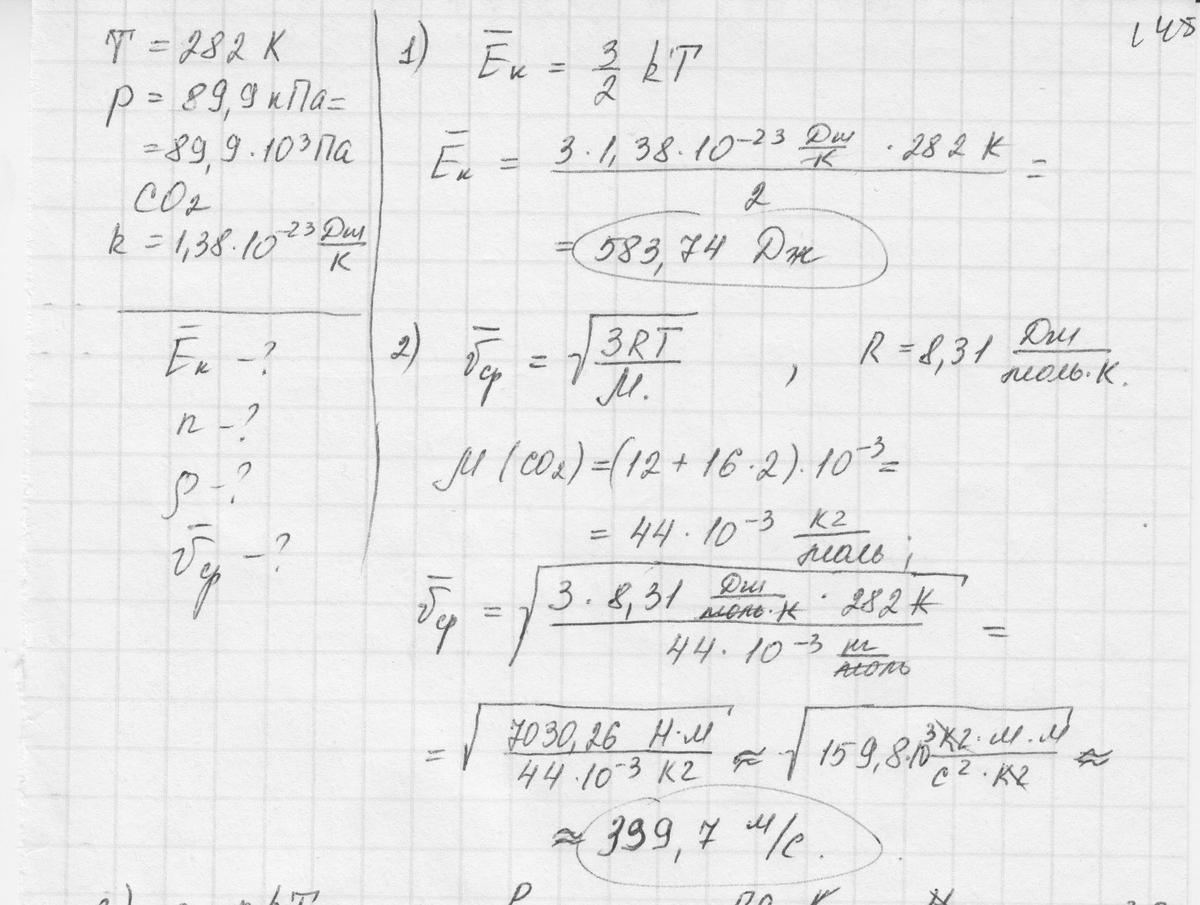 145
T = 282 К
p = 89,9 кПа=
=89,9·10³Па
CO₂
k = 1,38·10⁻²³ Дж/К
Ēк -?
n -?
ρ -?
v̄ср -?
1) Ēк = 3/2 kT
Ēк = 3·1,38·10⁻²³ Дж/К ·282 К / 2 =
= 583,74 Дж
2) v̄ср = √(3RT/M.) , R = 8,31 Дж/моль·К.
M (CO₂) = (12 + 16·2)·10⁻³ =
= 44·10⁻³ кг/моль ;
v̄ср = √(3·8,31 Дж/моль·К · 282 К / 44·10⁻³ кг/моль) =
= √(7030,26 Н·м / 44·10⁻³ кг) ≈ √(159,8·10³ кг·м·м / с²·кг) ≈
≈ 399,7 м/с.